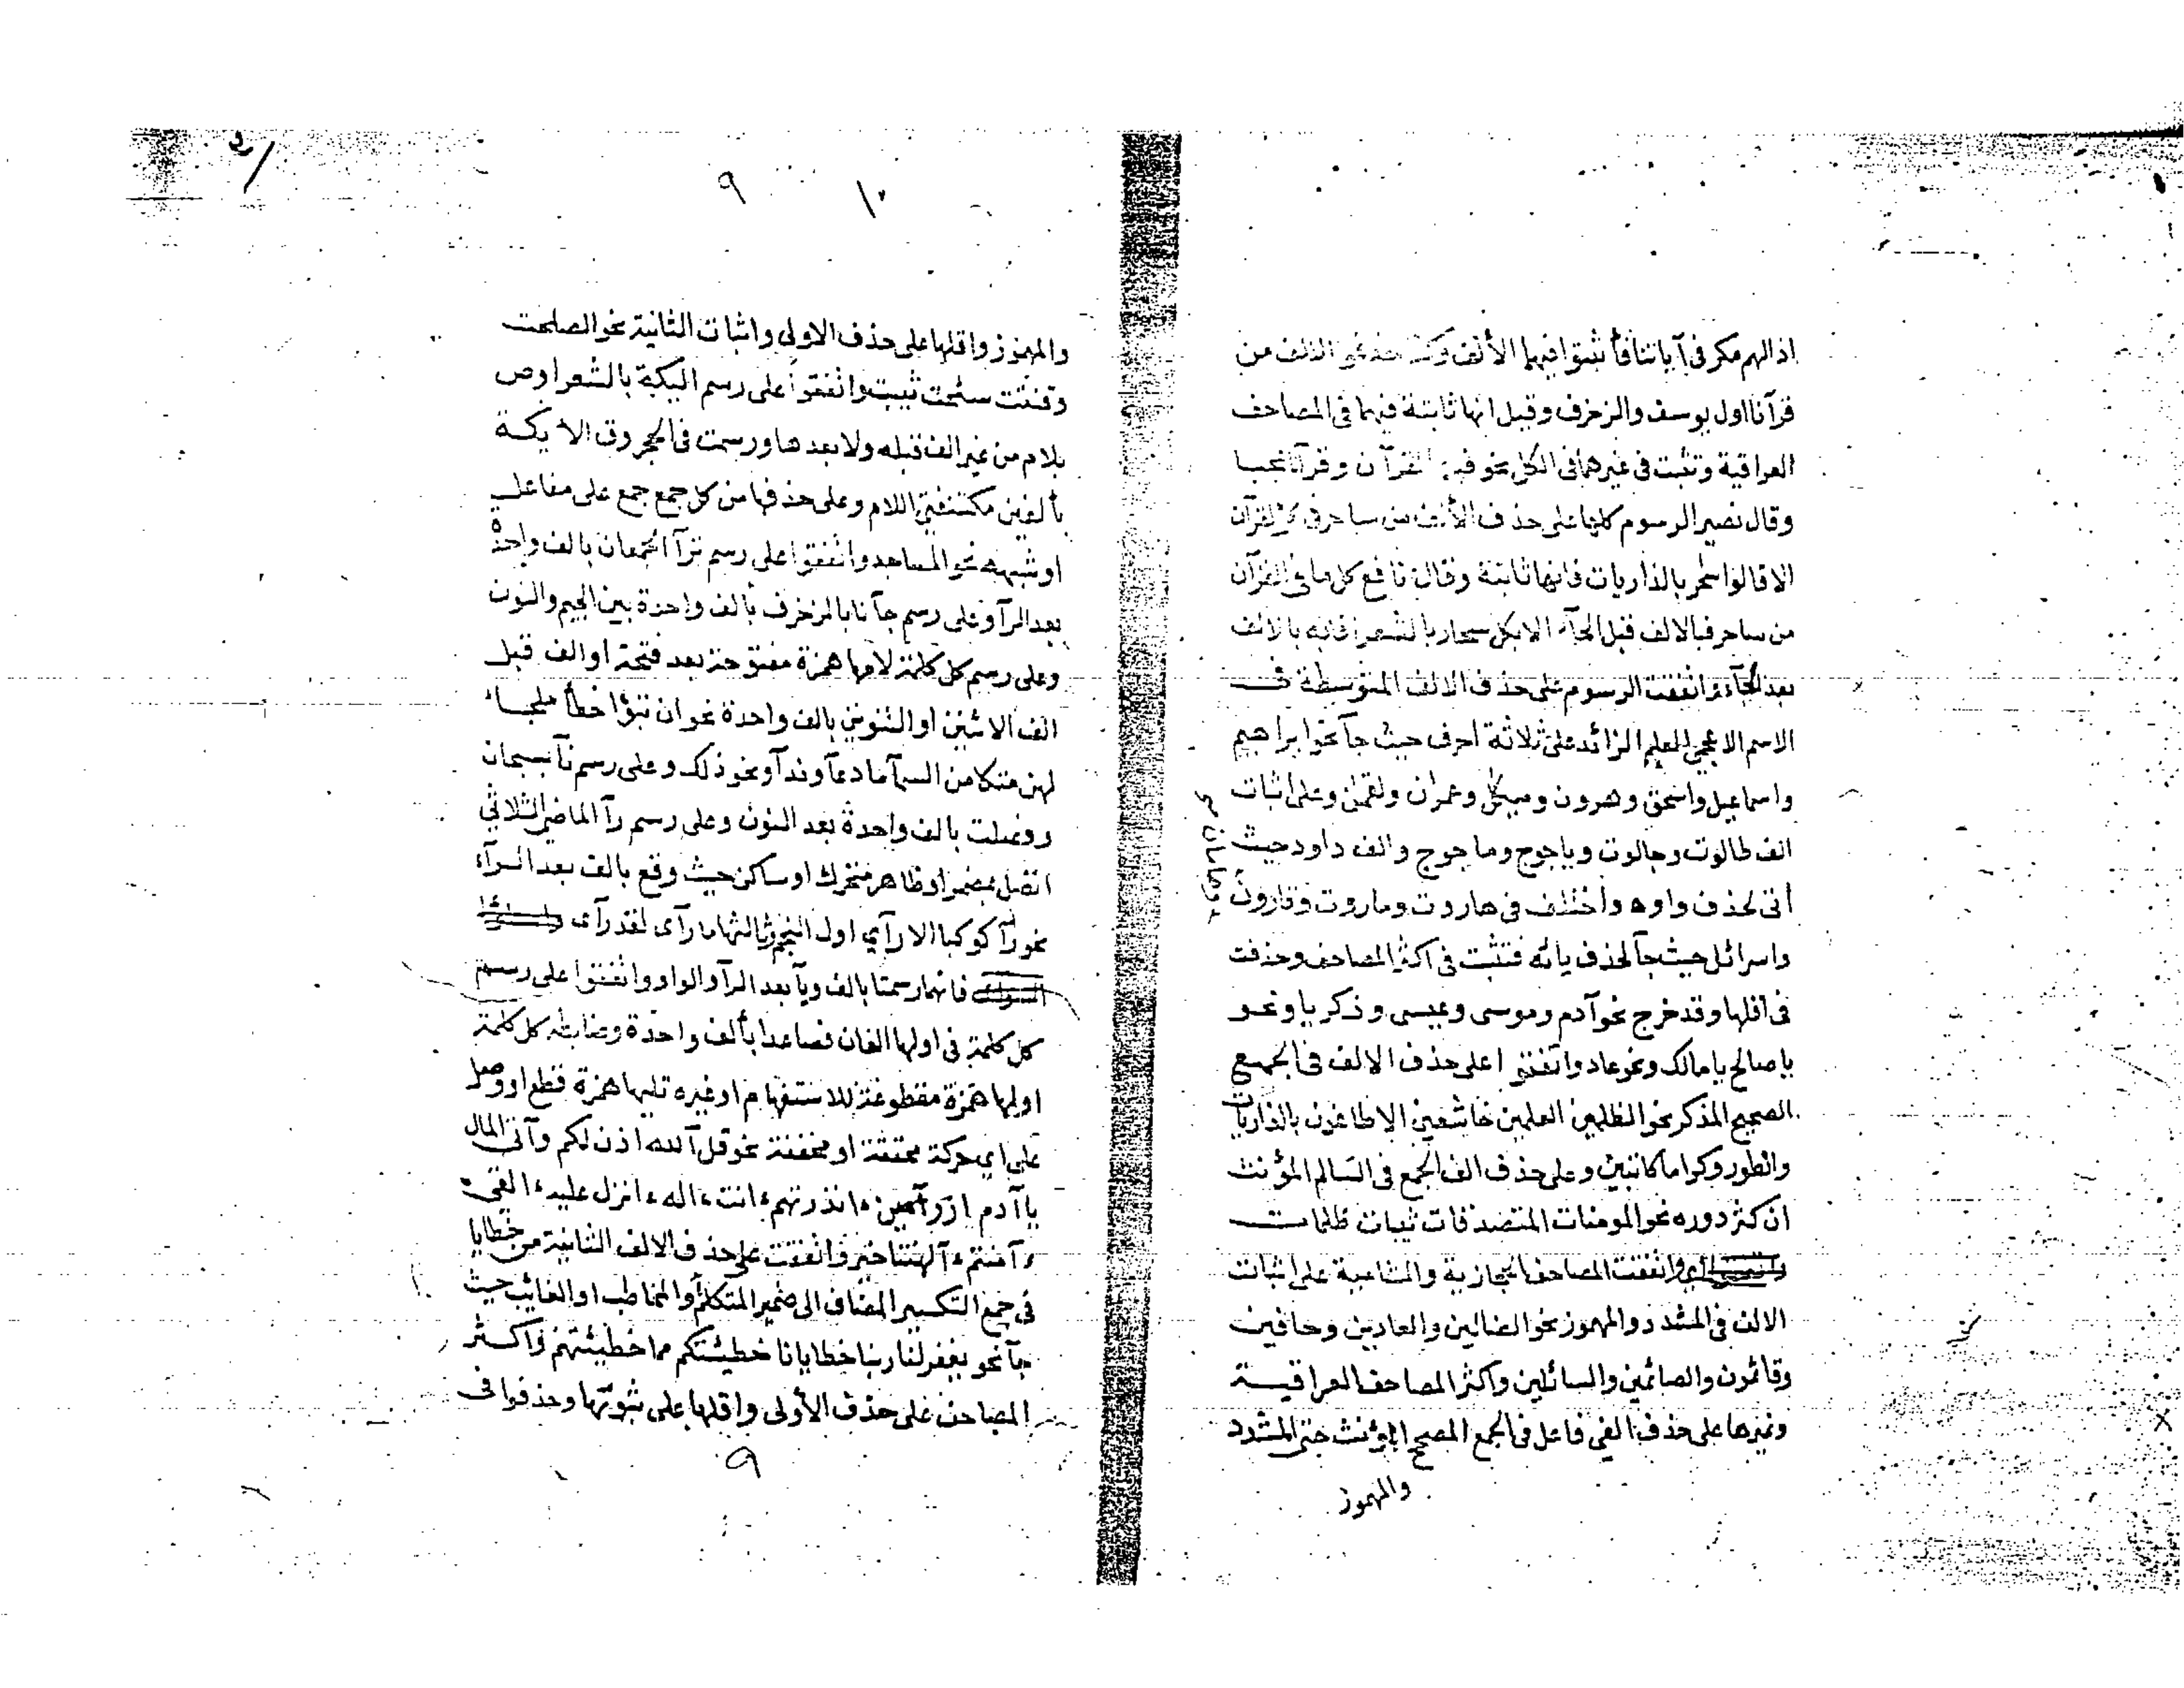 اذا لهم مكر فى آياتنا فأثبتوا فيهما الألف وكذا حذفوا الالف من
قرآنا اول يوسف والزخرف وقيل انها ثابتة فيهما فى المصاحف
العراقية وتثبت فى غيرهما فى الكل نحو فيه القرآن وقرآنا عجبا
وقال نصير الرسوم كلها على حذف الألف من ساحر فى كل القرآن
الا قالوا سٰحر بالذاريات فانها ثابتة وقال نافع كل ما فى القرآن
من ساحر فبالالف قبل الحآء الا بكل سحار بالشعرا فانه بالالف
بعد الحآء واتفقت الرسوم على حذف الالف المتوسطة فى
الاسم الاعجمى العلم الزائد على ثلاثة احرف حيث جآ نحو ابراهيم
واسماعيل واسحٰق وهرون وميكٰل وعمران ولقمٰن وعلى اثبات
الف طالوت وجالوت وياجوج وماجوج والف داود حيث
أتى لحذف واوه واختلف فى هاروت وماروت وقارون
وهامان
واسرائل حيث جآ لحذف يائه فتثبت فى اكثر المصاحف وحذفت
فى اقلها وقد خرج نحو آدم وموسى وعيسى وزكريا ونحو
ياصالح يامالك ونحو عاد واتفقوا على حذف الالف فى الجمع
الصحيح المذكر نحو الظلمين العلمين خاشعين الا طاغون بالذاريات
والطور وكراما كاتبين وعلى حذف الف الجمع فى السالم المؤنث
ان كثر دوره نحو المومنات المتصدقات ثيبات ظلمات
واتفقت المصاحف الحجازية والشامية على اثبات
الالف فى المشدد والمهموز نحو الضالين والعادين وحافين
وقائمون والصائمين والسائلين واكثر المصاحف العراقية
وغيرها على حذف الفى فاعل فى الجمع المصحح المؤنث حتى المشدد
والمهموز
٩
١٠
والمهموز واقلها على حذف الاولى واثبات الثانية نحو الصلحت
وقنتت سئحت ثيبت واتفقوا على رسم اليكة بالشعرا وص
بلام من غير الف قبله ولا بعدها ورسمت فى الحجر وق الايكة
بألفين مكتنفتى اللام وعلى حذفها من كل جمع جمع على مفاعل
او شبهه نحو المساجد واتفقوا على رسم ترآ الجمعان بالف واحدة
بعد الرآ وعلى رسم جآنا بالزخرف بألف واحدة بين الجيم والنون
وعلى رسم كل كلمة لامها همزة مفتوحة بعد فتحة او الف قبل
الف الاثنين او التنوين بالف واحدة نحو ان تبوّا خطأ ملجاء
لهن متكا من السمآ مآ دعآ وندآ ونحو ذلك وعلى رسم نآ بسبحان
وفصلت بالف واحدة بعد النون وعلى رسم رآ الماضى الثلاثى
اتصل بمضمر او ظاهر متحرك او ساكن حيث وقع بالف بعد الرآء
نحو رآ كوكبا الا رآى اول النجم وثالثها ما رآى لقد رآى
فانهما رسمتا بالف ويآ بعد الرآ والواو واتفقوا على رسم
كل كلمة فى اولها الفان فصاعدا بألف واحدة وضابطه كل كلمة
اولها همزة مقطوعة للاستفهام او غيره تليها همزة قطع او وصل
على اى حركة محققة او مخففة نحو قل آلله اذن لكم وآتى المال
ياآدم ازر آمين ءانذرتهم ءانت ءاله ءانزل عليه ءالقى
ءآمنتم ءآلهتنا خير واتفقت على حذف الالف الثانية من خطايا
فى جمع التكسير المضاف الى ضمير المتكلم أو المخاطب او الغائب حيث
جآ نحو يغفر لنا ربنا خطايانا خطيئتكم مما خطيئتهم واكثر
المصاحف على حذف الأولى واقلها على ثبوتها وحذفوا فى
٩